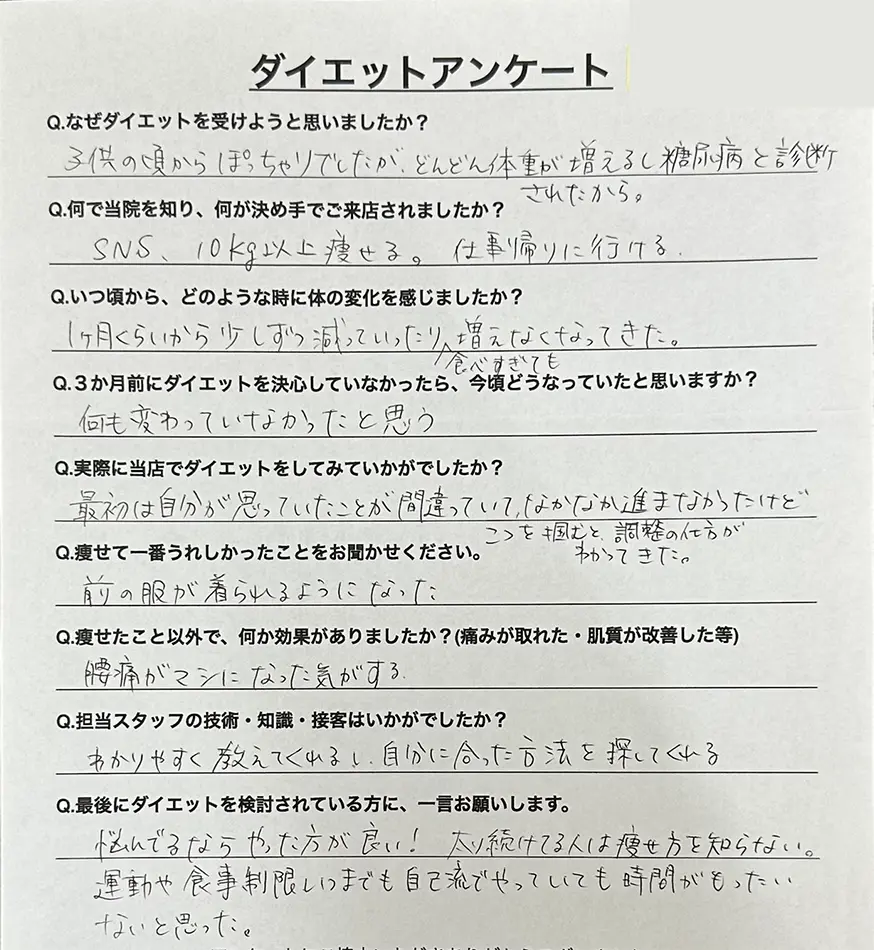 ダイエットアンケート
Q.なぜダイエットを受けようと思いましたか？
子供の頃からぽっちゃりでしたが、どんどん体重が増えるし糖尿病と診断
されたから。
Q.何で当院を知り、何が決め手でご来店されましたか？
SNS、10kg以上痩せる。仕事帰りに行ける.
Q.いつ頃から、どのような時に体の変化を感じましたか？
1ヶ月くらいから少しずつ減っていったり、増えなくなってきた。
食べすぎても
Q.３か月前にダイエットを決心していなかったら、今頃どうなっていたと思いますか？
何も変わっていなかったと思う
Q.実際に当店でダイエットをしてみていかがでしたか？
最初は自分が思っていたことが間違っていて、なかなか進まなかったけど
こつを掴むと、調整の仕方が
わかってきた。
Q.痩せて一番うれしかったことをお聞かせください。
前の服が着られるようになった
Q.痩せたこと以外で、何か効果がありましたか？(痛みが取れた・肌質が改善した等)
腰痛がマシになった気がする.
Q.担当スタッフの技術・知識・接客はいかがでしたか？
わかりやすく教えてくれるし、自分に合った方法を探してくれる
Q.最後にダイエットを検討されている方に、一言お願いします。
悩んでるならやった方が良い！ 太り続けてる人は痩せ方を知らない。
運動や食事制限いつまでも自己流でやっていても時間がもったい
ないと思った。